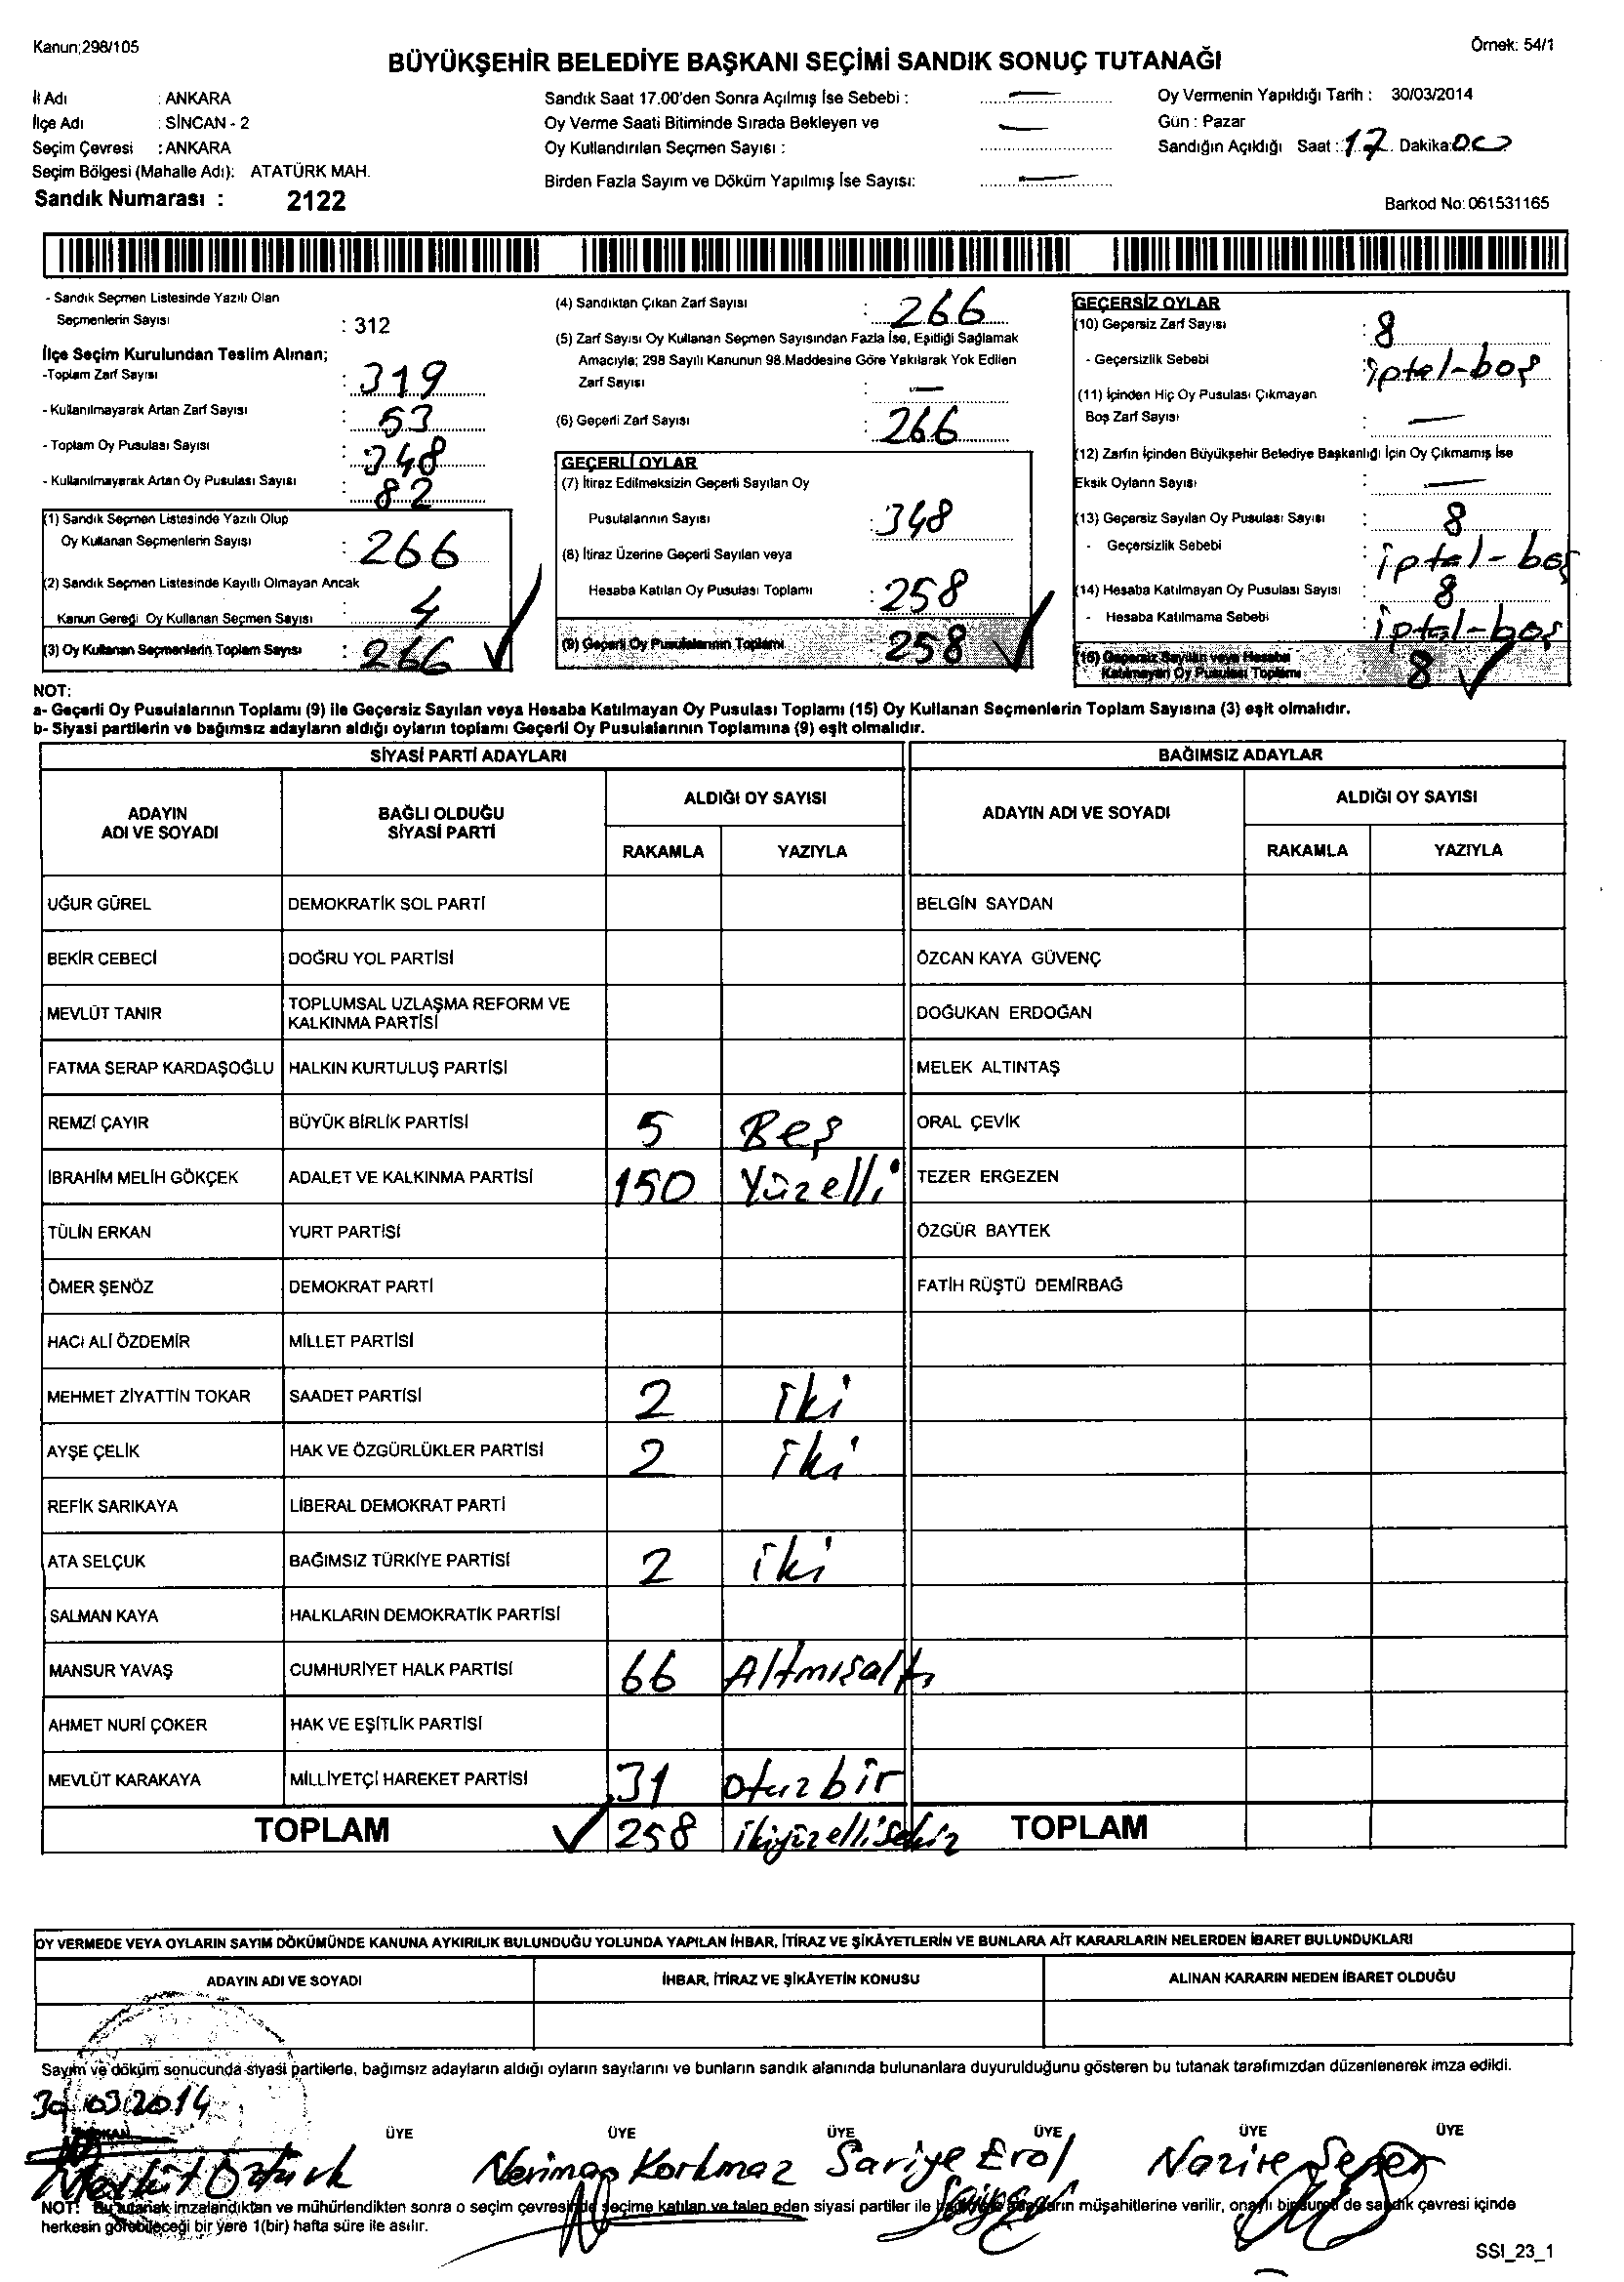 Kanun;298/105
Örnek: 54/1
BÜYÜKŞEHİR BELEDİYE BAŞKANI SEÇİMİ SANDIK SONUÇ TUTANAĞI
İl Adı : ANKARA
İlçe Adı : SİNCAN - 2
Seçim Çevresi : ANKARA
Seçim Bölgesi (Mahalle Adı): ATATÜRK MAH.
Sandık Numarası : 2122
Sandık Saat 17.00'den Sonra Açılmış İse Sebebi : —
Oy Verme Saati Bitiminde Sırada Bekleyen ve —
Oy Kullandırılan Seçmen Sayısı :
Birden Fazla Sayım ve Döküm Yapılmış İse Sayısı: —
Oy Vermenin Yapıldığı Tarih : 30/03/2014
Gün : Pazar
Sandığın Açıldığı Saat : 17 Dakika: 00
Barkod No: 061531165
- Sandık Seçmen Listesinde Yazılı Olan
Seçmenlerin Sayısı : 312
İlçe Seçim Kurulundan Teslim Alınan;
-Toplam Zarf Sayısı : 319
- Kullanılmayarak Artan Zarf Sayısı : 53
- Toplam Oy Pusulası Sayısı : 348
- Kullanılmayarak Artan Oy Pusulası Sayısı : 82
(1) Sandık Seçmen Listesinde Yazılı Olup
Oy Kullanan Seçmenlerin Sayısı : 266
(2) Sandık Seçmen Listesinde Kayıtlı Olmayan Ancak
Kanun Gereği Oy Kullanan Seçmen Sayısı : 4
(3) Oy Kullanan Seçmenlerin Toplam Sayısı : 266
(4) Sandıktan Çıkan Zarf Sayısı : 266
(5) Zarf Sayısı Oy Kullanan Seçmen Sayısından Fazla İse, Eşitliği Sağlamak
Amacıyla; 298 Sayılı Kanunun 98.Maddesine Göre Yakılarak Yok Edilen
Zarf Sayısı : —
(6) Geçerli Zarf Sayısı : 266
GEÇERLİ OYLAR
(7) İtiraz Edilmeksizin Geçerli Sayılan Oy
Pusulalarının Sayısı : 348
(8) İtiraz Üzerine Geçerli Sayılan veya
Hesaba Katılan Oy Pusulası Toplamı : 258
(9) Geçerli Oy Pusulalarının Toplamı : 258
GEÇERSİZ OYLAR
(10) Geçersiz Zarf Sayısı : 8
- Geçersizlik Sebebi : iptal-boş
(11) İçinden Hiç Oy Pusulası Çıkmayan
Boş Zarf Sayısı : —
(12) Zarfın İçinden Büyükşehir Belediye Başkanlığı İçin Oy Çıkmamış İse
Eksik Oyların Sayısı : —
(13) Geçersiz Sayılan Oy Pusulası Sayısı : 8
- Geçersizlik Sebebi : iptal-boş
(14) Hesaba Katılmayan Oy Pusulası Sayısı : 8
- Hesaba Katılmama Sebebi : iptal-boş
(15) Geçersiz Sayılan veya Hesaba
Katılmayan Oy Pusulası Toplamı 8
NOT:
a- Geçerli Oy Pusulalarının Toplamı (9) ile Geçersiz Sayılan veya Hesaba Katılmayan Oy Pusulası Toplamı (15) Oy Kullanan Seçmenlerin Toplam Sayısına (3) eşit olmalıdır.
b- Siyasi partilerin ve bağımsız adayların aldığı oyların toplamı Geçerli Oy Pusulalarının Toplamına (9) eşit olmalıdır.
SİYASİ PARTİ ADAYLARI
BAĞIMSIZ ADAYLAR
ADAYIN ADI VE SOYADI
BAĞLI OLDUĞU SİYASİ PARTİ
ALDIĞI OY SAYISI
RAKAMLA YAZIYLA
ADAYIN ADI VE SOYADI
ALDIĞI OY SAYISI
RAKAMLA YAZIYLA
UĞUR GÜREL DEMOKRATİK SOL PARTİ BELGİN SAYDAN
BEKİR CEBECİ DOĞRU YOL PARTİSİ ÖZCAN KAYA GÜVENÇ
MEVLÜT TANIR TOPLUMSAL UZLAŞMA REFORM VE KALKINMA PARTİSİ DOĞUKAN ERDOĞAN
FATMA SERAP KARDAŞOĞLU HALKIN KURTULUŞ PARTİSİ MELEK ALTINTAŞ
REMZİ ÇAYIR BÜYÜK BİRLİK PARTİSİ 5 Beş ORAL ÇEVİK
İBRAHİM MELİH GÖKÇEK ADALET VE KALKINMA PARTİSİ 150 Yüzelli TEZER ERGEZEN
TÜLİN ERKAN YURT PARTİSİ ÖZGÜR BAYTEK
ÖMER ŞENÖZ DEMOKRAT PARTİ FATİH RÜŞTÜ DEMİRBAĞ
HACI ALİ ÖZDEMİR MİLLET PARTİSİ
MEHMET ZİYATTİN TOKAR SAADET PARTİSİ 2 iki
AYŞE ÇELİK HAK VE ÖZGÜRLÜKLER PARTİSİ 2 iki
REFİK SARIKAYA LİBERAL DEMOKRAT PARTİ
ATA SELÇUK BAĞIMSIZ TÜRKİYE PARTİSİ 2 iki
SALMAN KAYA HALKLARIN DEMOKRATİK PARTİSİ
MANSUR YAVAŞ CUMHURİYET HALK PARTİSİ 66 Altmışaltı
AHMET NURİ ÇOKER HAK VE EŞİTLİK PARTİSİ
MEVLÜT KARAKAYA MİLLİYETÇİ HAREKET PARTİSİ 31 otuzbir
TOPLAM 258 ikiyüzellisekiz TOPLAM
OY VERMEDE VEYA OYLARIN SAYIM DÖKÜMÜNDE KANUNA AYKIRILIK BULUNDUĞU YOLUNDA YAPILAN İHBAR, İTİRAZ VE ŞİKÂYETLERİN VE BUNLARA AİT KARARLARIN NELERDEN İBARET BULUNDUKLARI
ADAYIN ADI VE SOYADI İHBAR, İTİRAZ VE ŞİKÂYETİN KONUSU ALINAN KARARIN NEDEN İBARET OLDUĞU
Sayım ve döküm sonucunda siyasi partilerle, bağımsız adayların aldığı oyların sayılarını ve bunların sandık alanında bulunanlara duyurulduğunu gösteren bu tutanak tarafımızdan düzenlenerek imza edildi.
30/03/2014
BAŞKAN ÜYE ÜYE ÜYE ÜYE ÜYE ÜYE
Öztürk Neriman Korkmaz Sariye Erol Nazire
NOT: Bu tutanak imzalandıktan ve mühürlendikten sonra o seçim çevresinde seçime katılan ve talep eden siyasi partiler ile müşahitlerine verilir, onaylı bir sureti de sandık çevresi içinde
herkesin görebileceği bir yere 1(bir) hafta süre ile asılır.
SSI_23_1